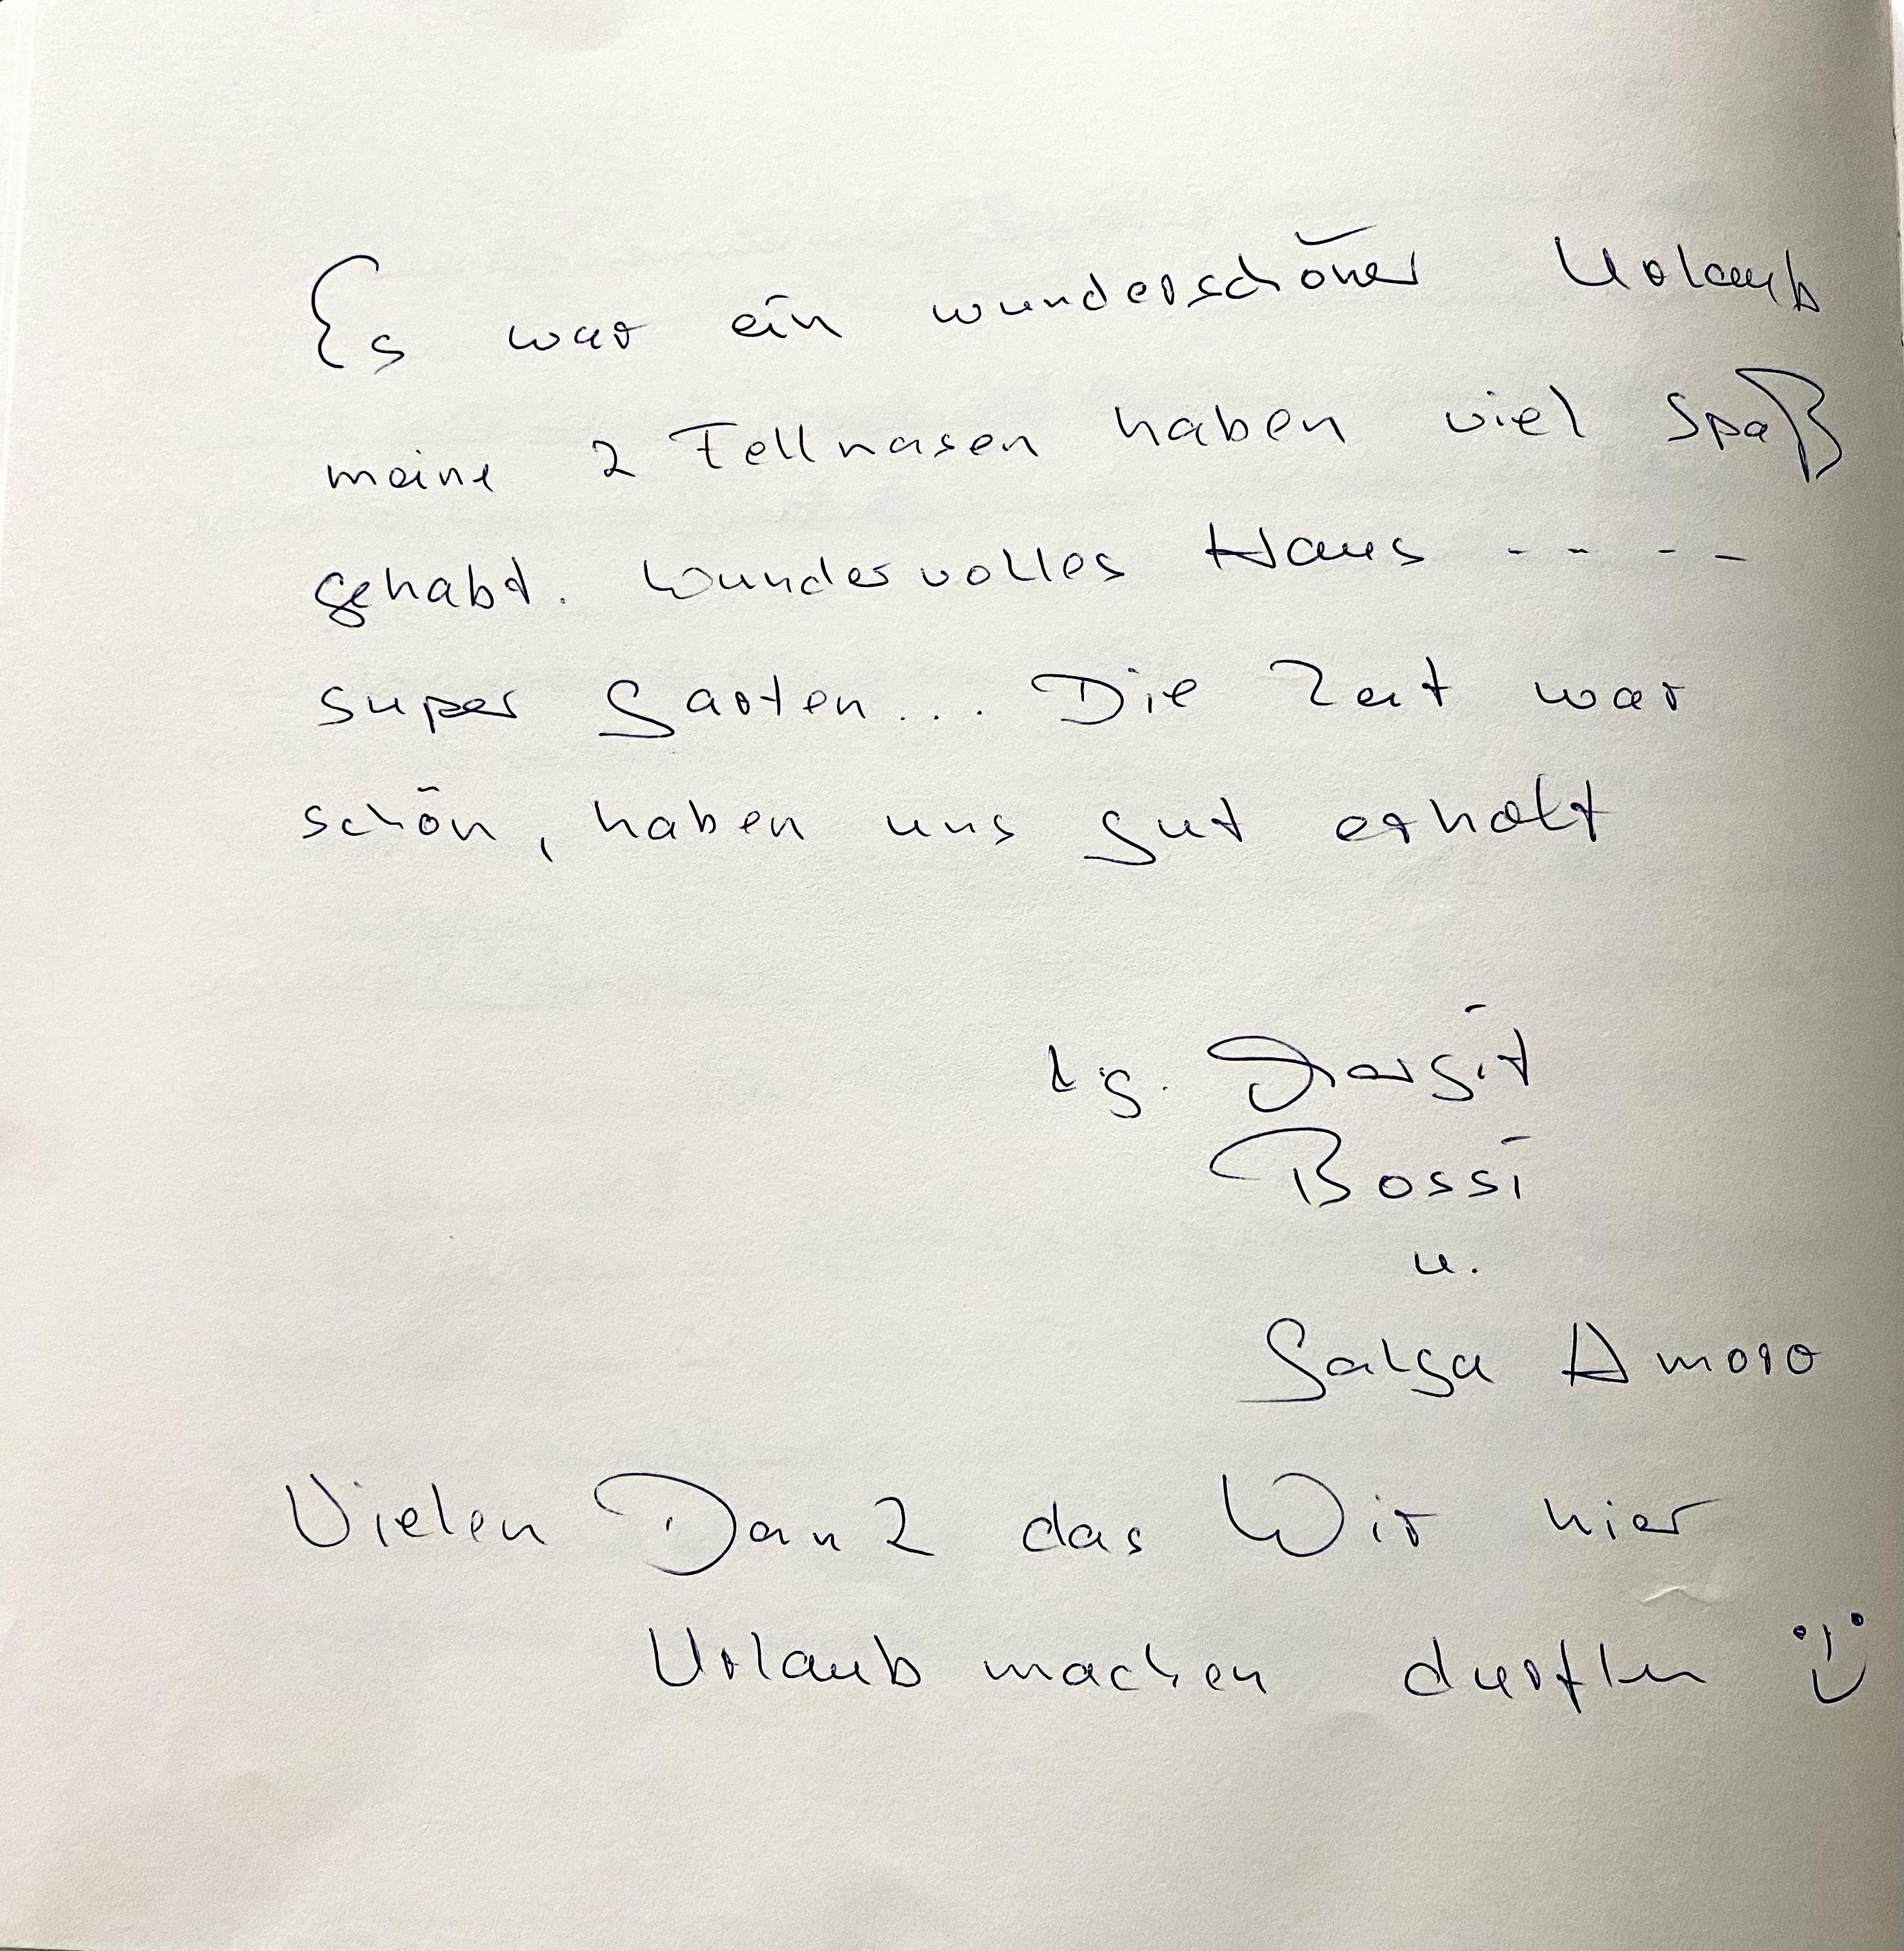 Es war ein wunderschöner Urlaub
meine 2 Fellnasen haben viel Spaß
gehabt. Wundervolles Haus - - - -
super Garten... Die Zeit war
schön, haben uns gut erholt
Lg. Margit
Bossi
u.
Salsa Amoro
Vielen Dank das Wir hier
Urlaub machen durften :)